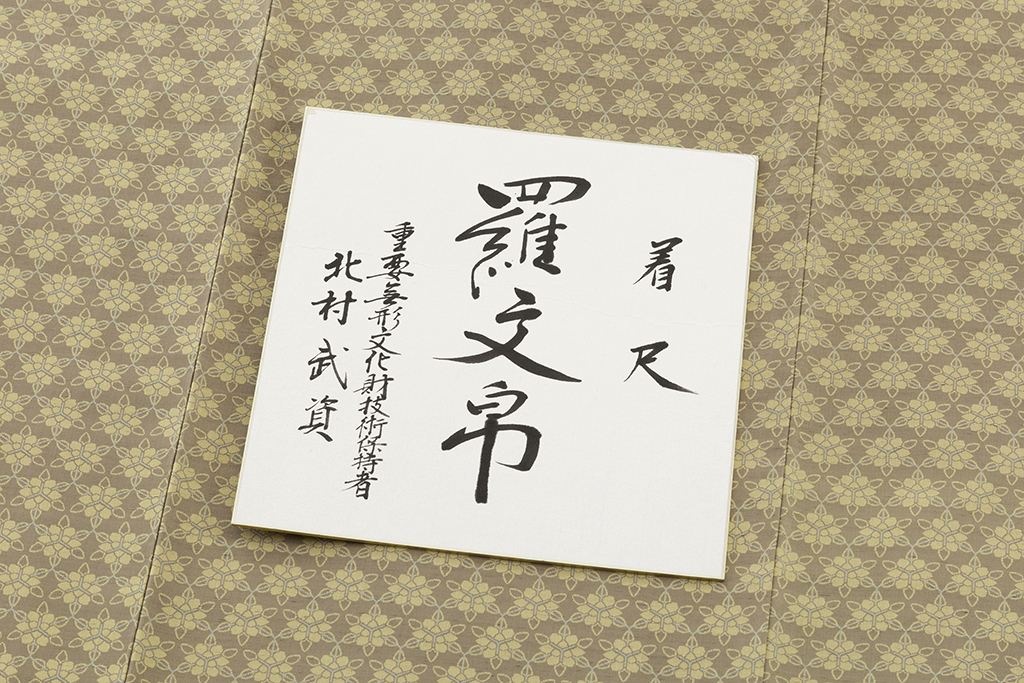 着尺
羅文帛
重要無形文化財技術保持者
北村武資